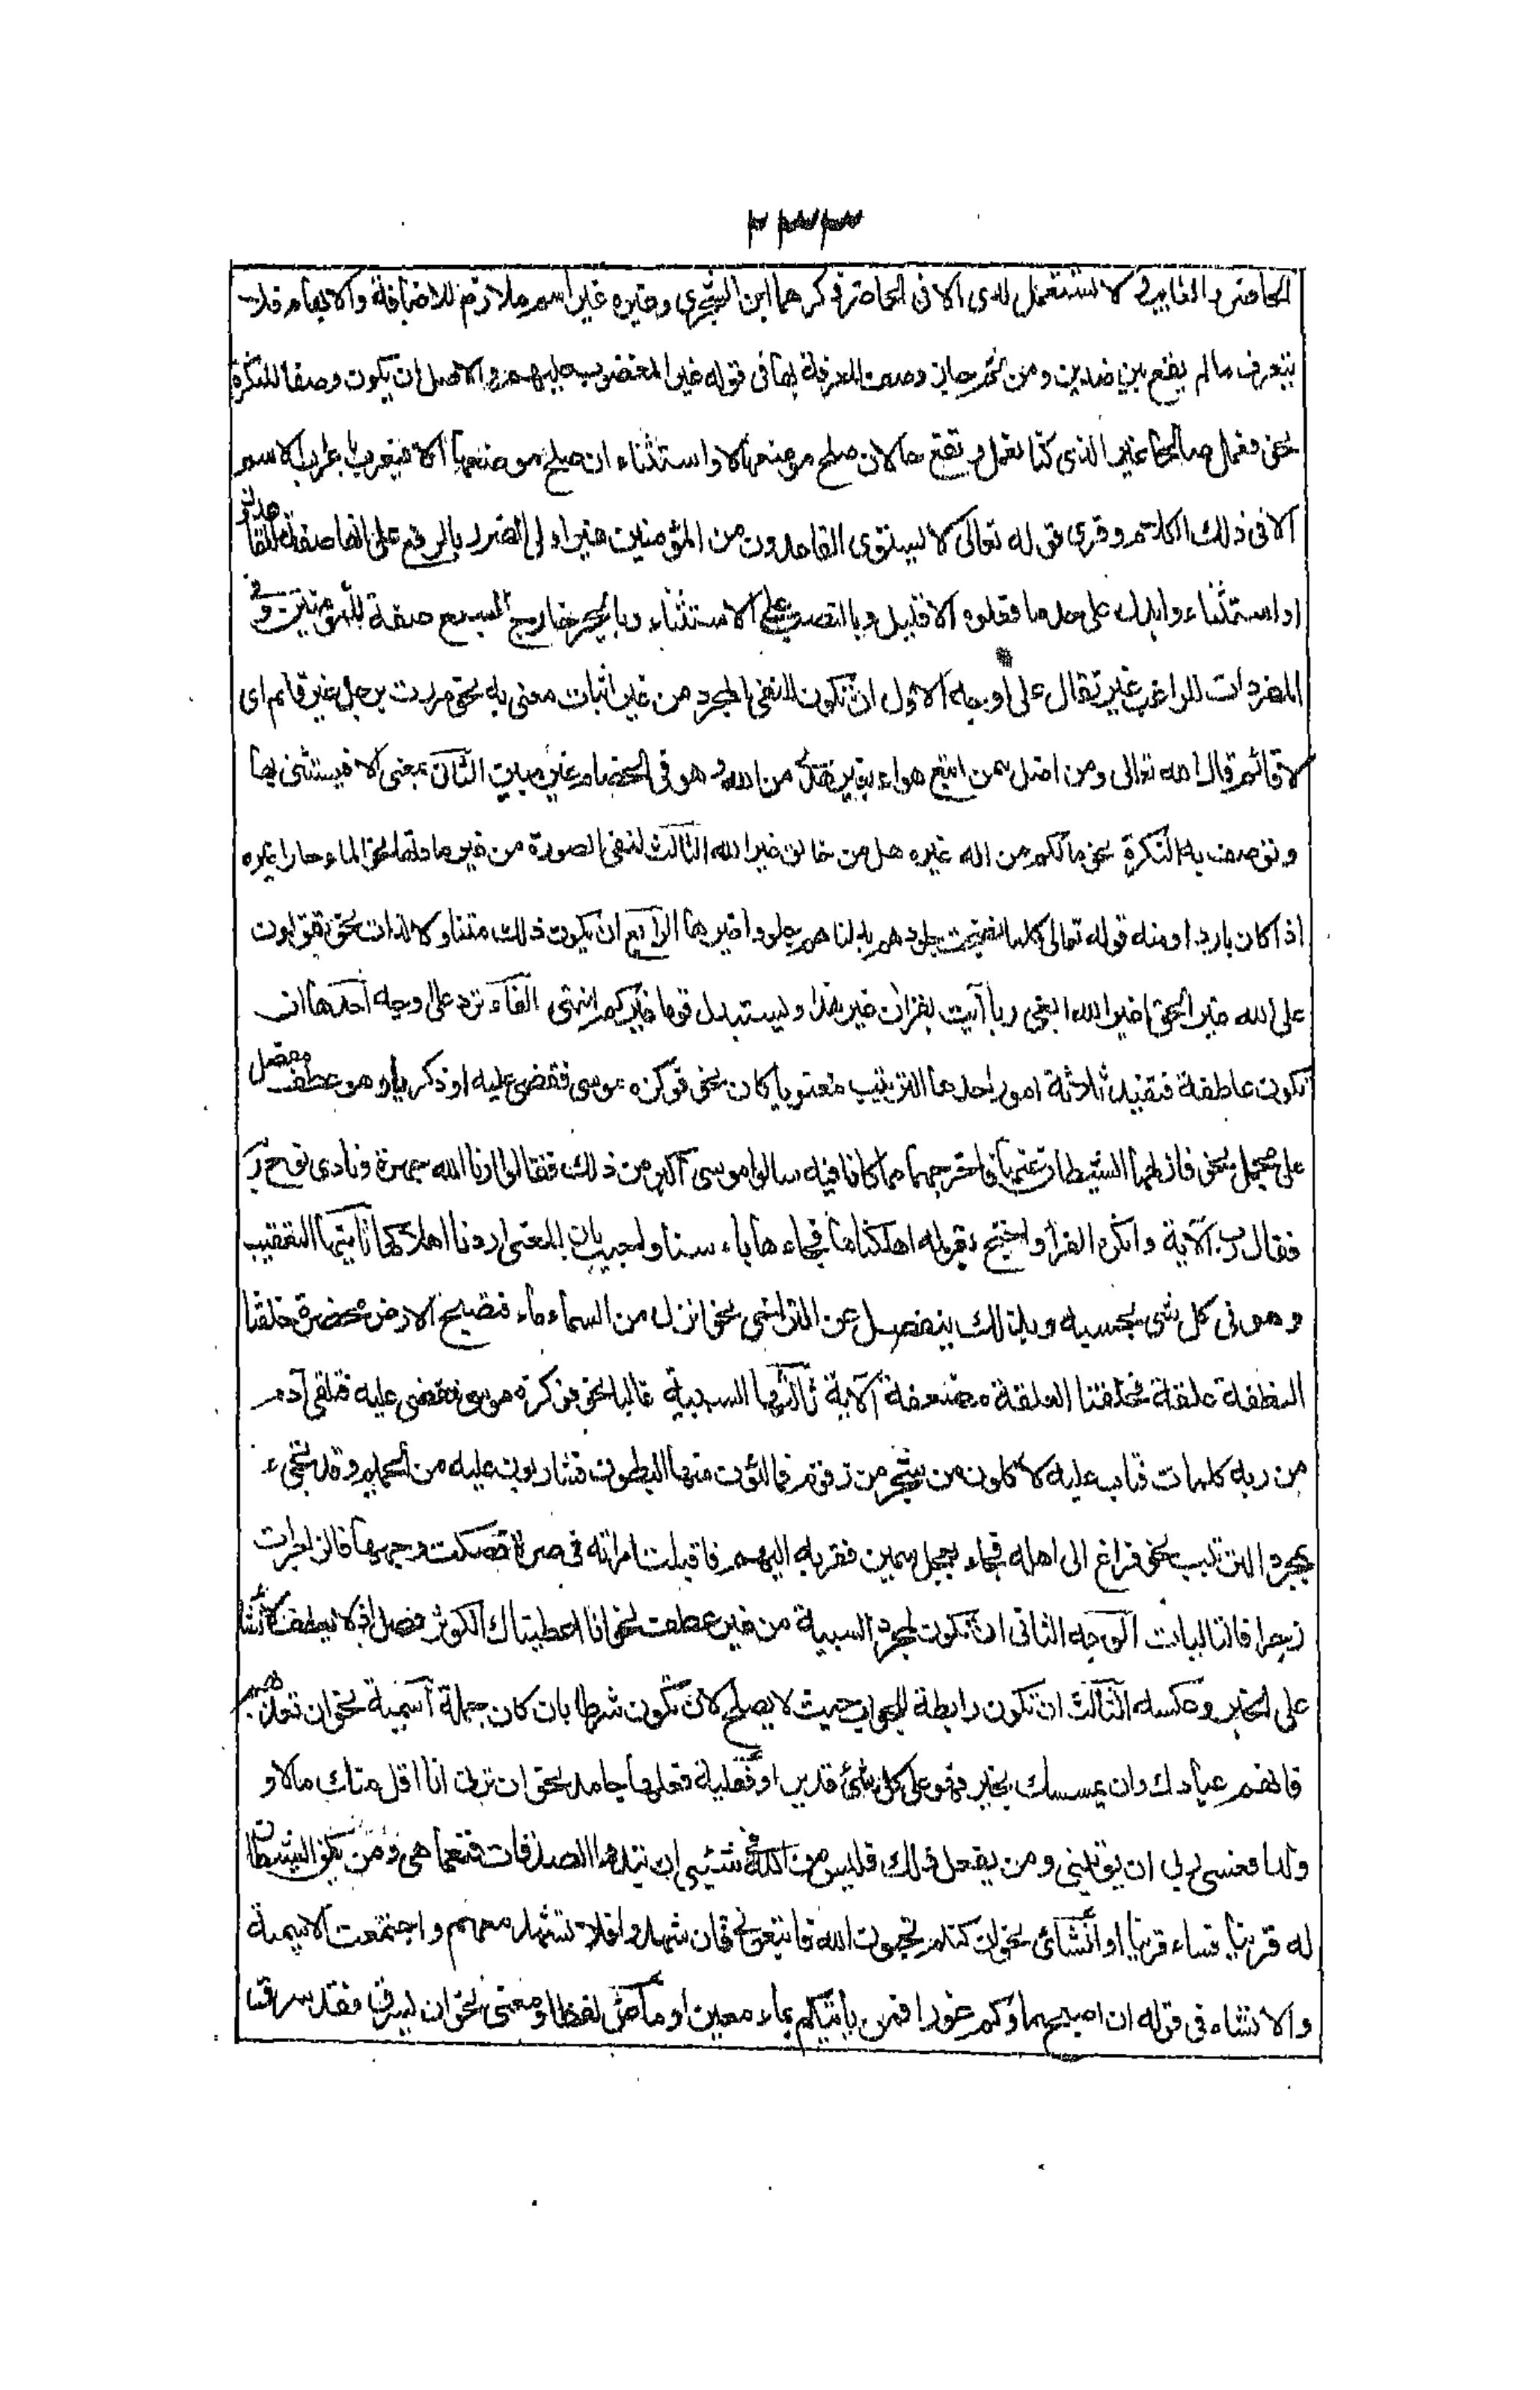 ٢٣٣
الحاضر والغايب ولا تستعمل لدى الا فى الحاضر ذكرهما ابن الشجرى وغيره غير اسم ملازم للاضافة والابهام فلا
يتعرف ما لم يقع بين ضدين ومن ثم جاز وصف المعرفة بها فى قوله غير المغضوب عليهم والاصل ان يكون وصفا للنكرة
نحو نعمل صالحا غير الذى كنا نعمل وتقع حالا ان صلح موضعها لا واستثناء ان صلح موضعها الا فيعرب باعراب الاسم
الا فى ذلك الكلام وقرى قوله تعالى لا يستوى القاعدون من المؤمنين غير اولى الضرر بالرفع على انها صفة للقاعدون
او استثناء وابدل على حد ما فعلوه الا قليل وبالنصب على الاستثناء وبالجر خارج السبع صفة للمؤمنين وفى
المفردات للراغب غير تقال على اوجه الاول ان تكون للنفى المجرد من غير اثبات معنى به نحو مررت برجل غير قائم اى
لا قائم قال الله تعالى ومن اضل ممن اتبع هواه بغير هدى من الله وهو فى الخصام غير مبين الثانى بمعنى الا فيستثنى بها
وتوصف به النكرة نحو مالكم من اله غيره هل من خالق غير الله الثالث لنفى الصورة من غير مادتها نحو الماء حارا غيره
اذا كان باردا ومنه قوله تعالى كلما نضجت جلودهم بدلناهم جلودا غيرها الرابع ان يكون ذلك متناولا لذات نحو تقولون
على الله غير الحق اغير الله ابغى ربا أئت بقران غير هذا ويستبدل قوما غيركم انتهى الفاء ترد على اوجه احدها ان
تكون عاطفة فتفيد ثلاثة امور احدها الترتيب معنويا كان نحو فوكزه موسى فقضى عليه او ذكريا وهو عطف مفصل
على مجمل نحو فازلهما الشيطان عنها فاخرجهما مما كانا فيه سالوا موسى اكبر من ذلك فقالوا ارنا الله جهرة ونادى نوح ربه
فقال رب الآية وانكره الفراء واحتج بقوله اهلكناها فجاءها باسنا واجيب بان المعنى اردنا اهلاكها ثانيها التعقيب
وهو فى كل شى بحسبه وبذلك ينفصل عن التراخى نحو انزل من السماء ماء فتصبح الارض مخضرة خلقنا
النطفة علقة فخلقنا العلقة مضغة الآية ثالثها السببية غالبا نحو فوكزه موسى فقضى عليه فتلقى آدم
من ربه كلمات فتاب عليه لاكلون من شجر من زقوم فمالئون منها البطون فشاربون عليه من الحميم وقد تجىء
لمجرد الترتيب نحو فراغ الى اهله فجاء بعجل سمين فقربه اليهم فاقبلت امراته فى صرة فصكت وجهها فالزاجرات
زجرا فالتاليات الوجه الثانى ان تكون لمجرد السببية من غير عطف نحو انا اعطيناك الكوثر فصل اذ لا يعطف الانشا
على الخبر وعكسه الثالث ان تكون رابطة للجواب حيث لا يصلح لان تكون شرطا بان كان جملة اسمية نحو ان تعذبهم
فانهم عبادك وان يمسسك بخير فهو على كل شئ قدير او فعلية فعلها جامد نحو ان ترن انا اقل منك مالا و
ولدا فعسى ربى ان يؤتينى ومن يفعل ذلك فليس من الله فى شئى ان تبدوا الصدقات فنعما هى ومن يكن الشيطان
له قرينا فساء قرينا او انشائى نحو ان كنتم تحبون الله فاتبعونى فان شهدوا فلا تشهد معهم واجتمعت الاسمية
والانشاء فى قوله ان اصبح ماؤكم غورا فمن يأتيكم بماء معين او ماض لفظا ومعنى نحو ان يسرق فقد سرق